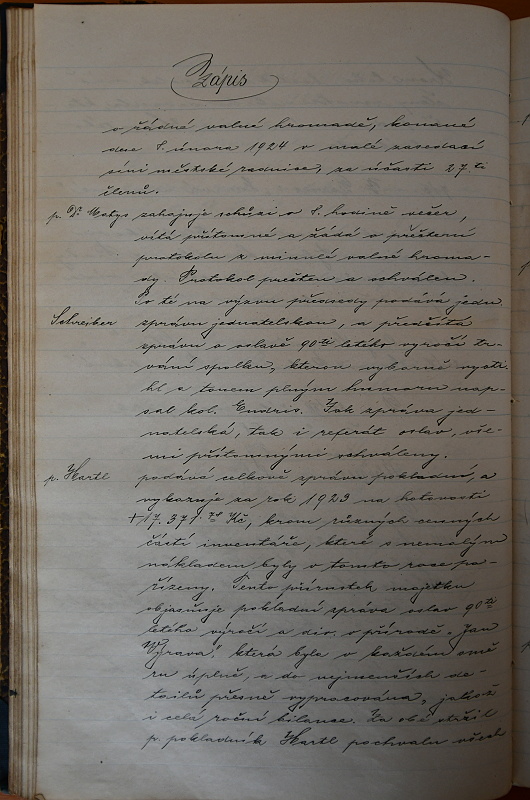 Zápis
o řádné valné hromadě, konané
dne 8. února 1924 v malé zasedací
síni městské radnice, za účasti 27.ti
členů.
p. Dr Matys zahajuje schůzi o 8. hodině večer,
vítá přítomné a žádá o přečtení
protokolu z minulé valné hroma-
dy. Protokol přečten a schválen.
Po té na výzvu předsedy podává jedn.
Schreiber zprávu jednatelskou, a předčítá
zprávu o oslavě 90ti letého výročí tr-
vání spolku, kterou výborně vysti-
hl a tonem plným humoru nap-
sal kol. Endris. Jak zpráva jed-
natelská, tak i referát oslav, vše-
mi přítomnými schváleny.
p. Hartl podává celkově zprávu pokladní, a
vykazuje za rok 1923 na hotovosti
+17.371.78 Kč, krom různých cenných
částí inventáře, které s nemalým
nákladem byly v tomto roce po-
řízeny. Tento přírustek majetku
objasňuje pokladní zpráva oslav 90ti
letého výročí a div. v přírodě „Jan
Výrava", která byla v každém smě
ru úplně, a do nejmenších de-
tailů přesně vypracována, jakož
i celá roční bilance. Za obé sklidil
p. pokladník Hartl pochvalu všech